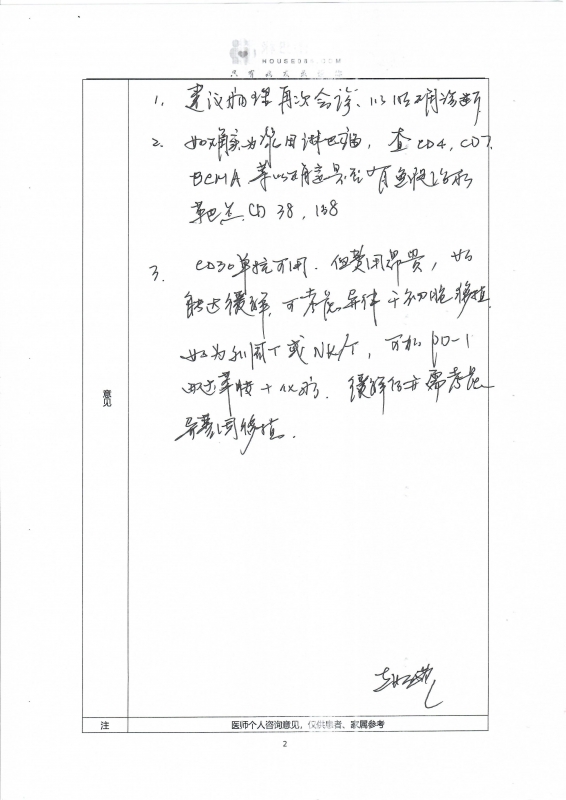 HOUSE086.COM
1. 建议病理再次会诊、以明确诊断
2. 如确定为浆母淋巴瘤, 查 CD4, CD7
BCMA 等以确定是否有免疫治疗
靶点 CD38, 138
3. CD30单抗可用. 但费用昂贵, 如
能达缓解, 可考虑异体干细胞移植.
如为外周T或NK/T, 可考 PD-1
西达苯胺+化疗. 缓解后亦需考虑
异基因移植.
意见
注 医师个人咨询意见，仅供患者、家属参考
2